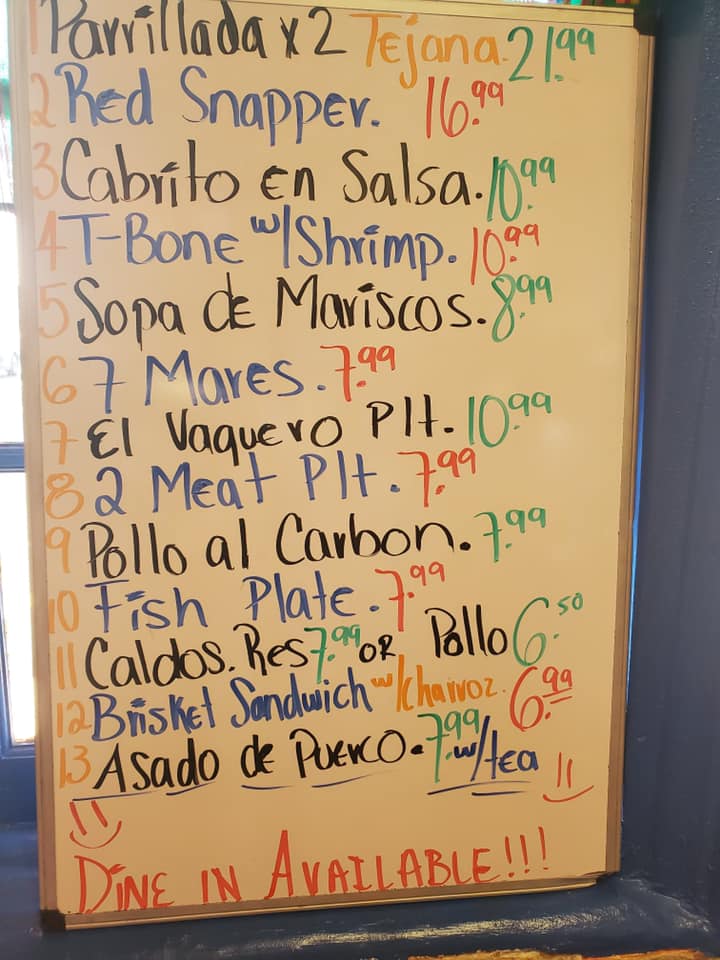 1 Parrillada x 2 Tejana. 21.99
2 Red Snapper. 16.99
3 Cabrito en Salsa. 10.99
4 T-Bone w/Shrimp. 10.99
5 Sopa de Mariscos. 8.99
6 7 Mares. 7.99
7 El Vaquero Plt. 10.99
8 2 Meat Plt. 7.99
9 Pollo al Carbon. 7.99
10 Fish Plate. 7.99
11 Caldos. Res 7.99 OR Pollo 6.50
12 Brisket Sandwich w/chairoz. 6.99
13 Asado de Puerco. 7.99 w/tea
DINE IN AVAILABLE!!!